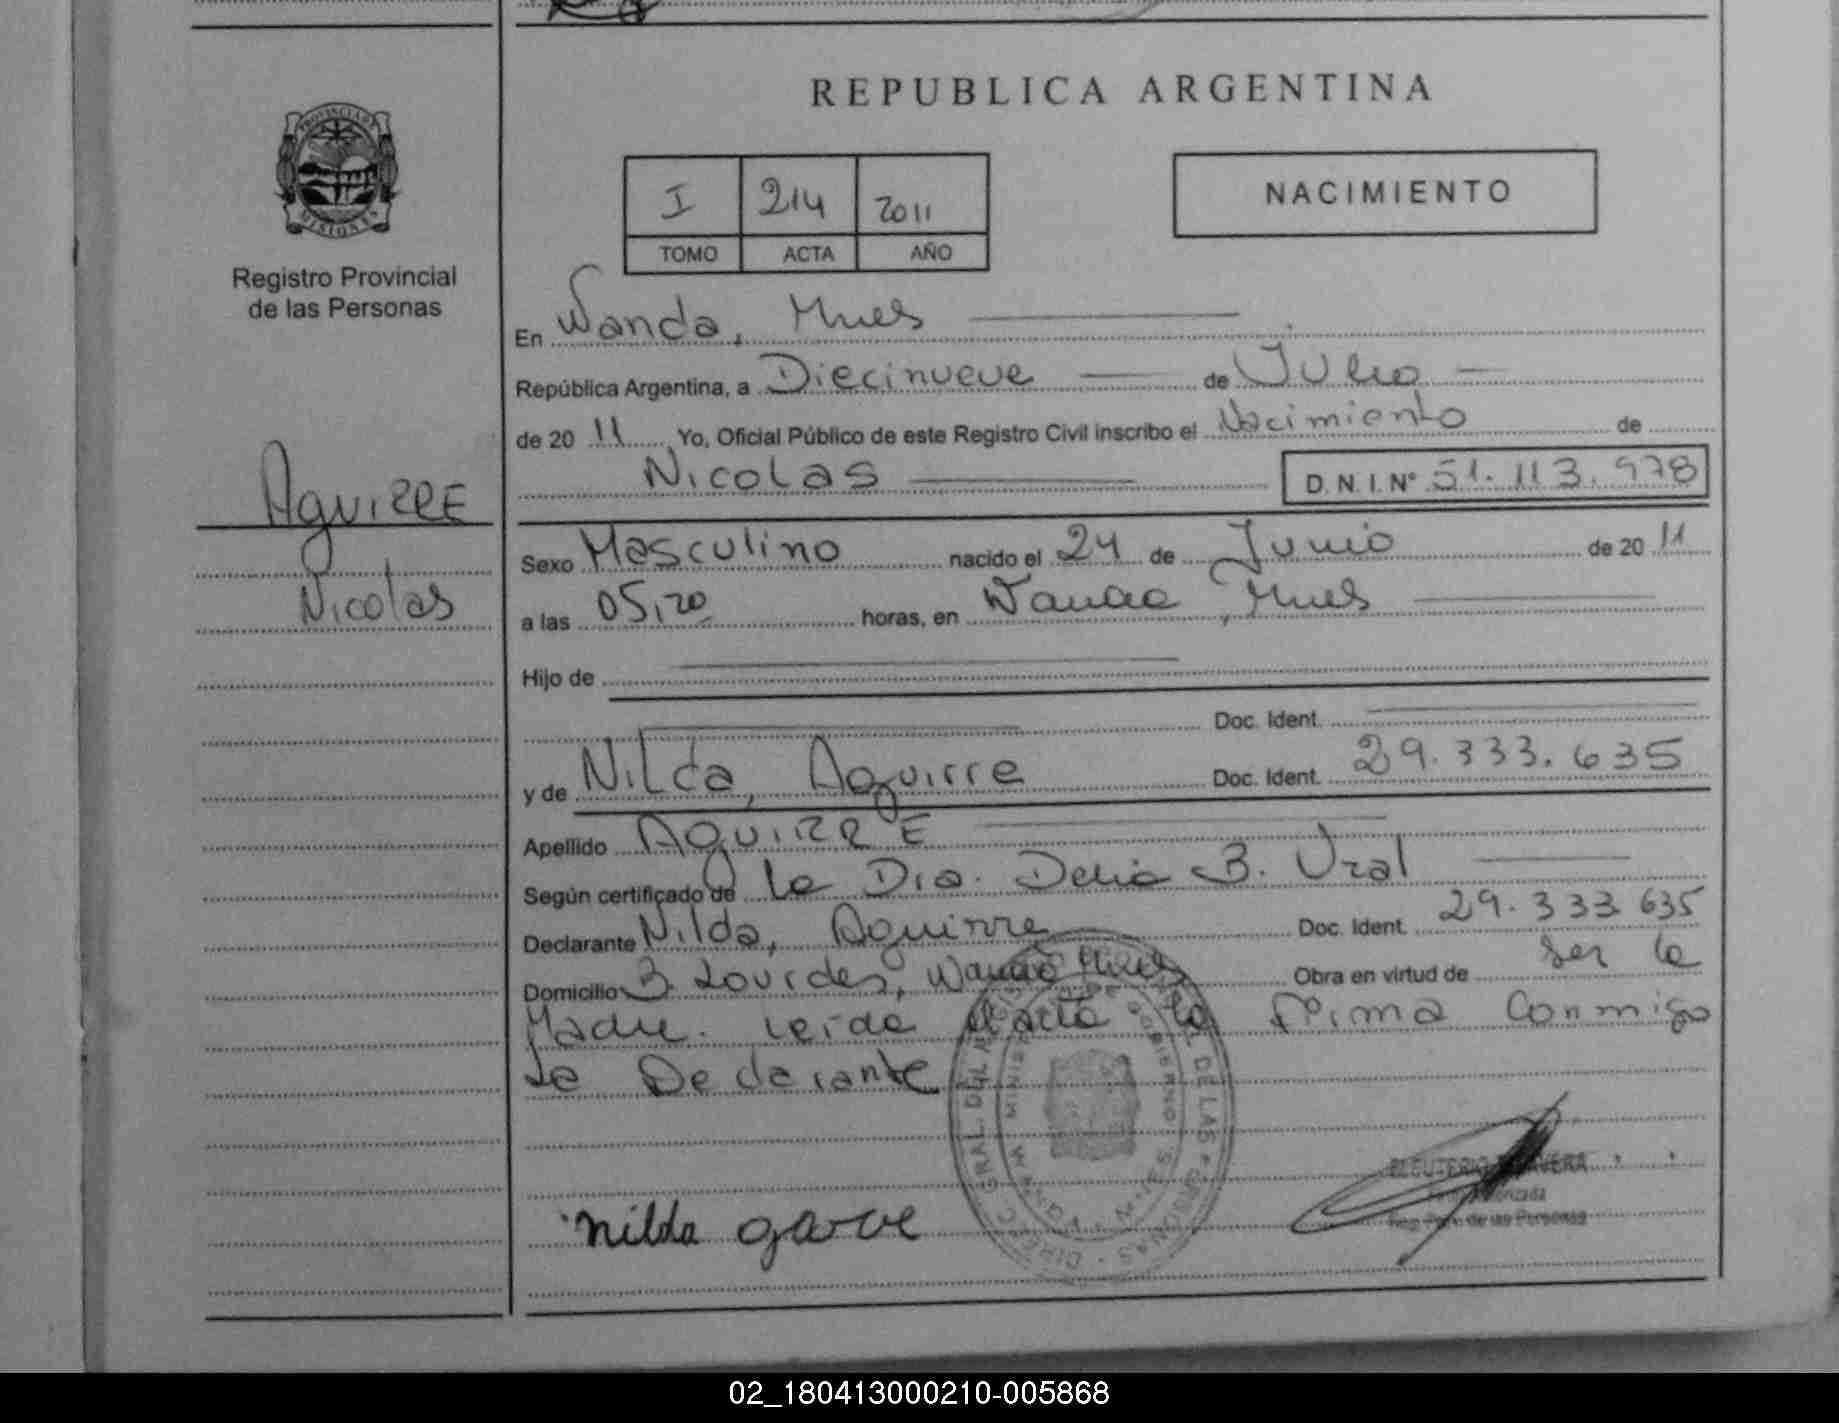 REPUBLICA ARGENTINA
PROVINCIA DE
MISIONES
Registro Provincial
de las Personas
I 214 2011
TOMO ACTA AÑO
NACIMIENTO
En Wanda, Mnes
República Argentina, a Diecinueve de Julio
de 20 11 Yo, Oficial Público de este Registro Civil inscribo el Nacimiento de
Nicolas D.N.I.N° 51.113.978
AguiRRE
Nicolas
Sexo Masculino nacido el 24 de Junio de 20 11
a las 05,20 horas, en Wanda, Mnes
Hijo de
Doc. Ident.
y de Nilda, Aguirre Doc. Ident. 29.333.635
Apellido AguiRRE
Según certificado de la Dra. Delia B.
Declarante Nilda, Aguirre Doc. Ident. 29.333.635
Domicilio B. Lourdes, Wanda Mnes Obra en virtud de ser la
Madre. Leida el acta la Firma Conmigo
La Declarante
nilda
ELEUTERIO
Reg. Prov. de las Personas
02_180413000210-005868